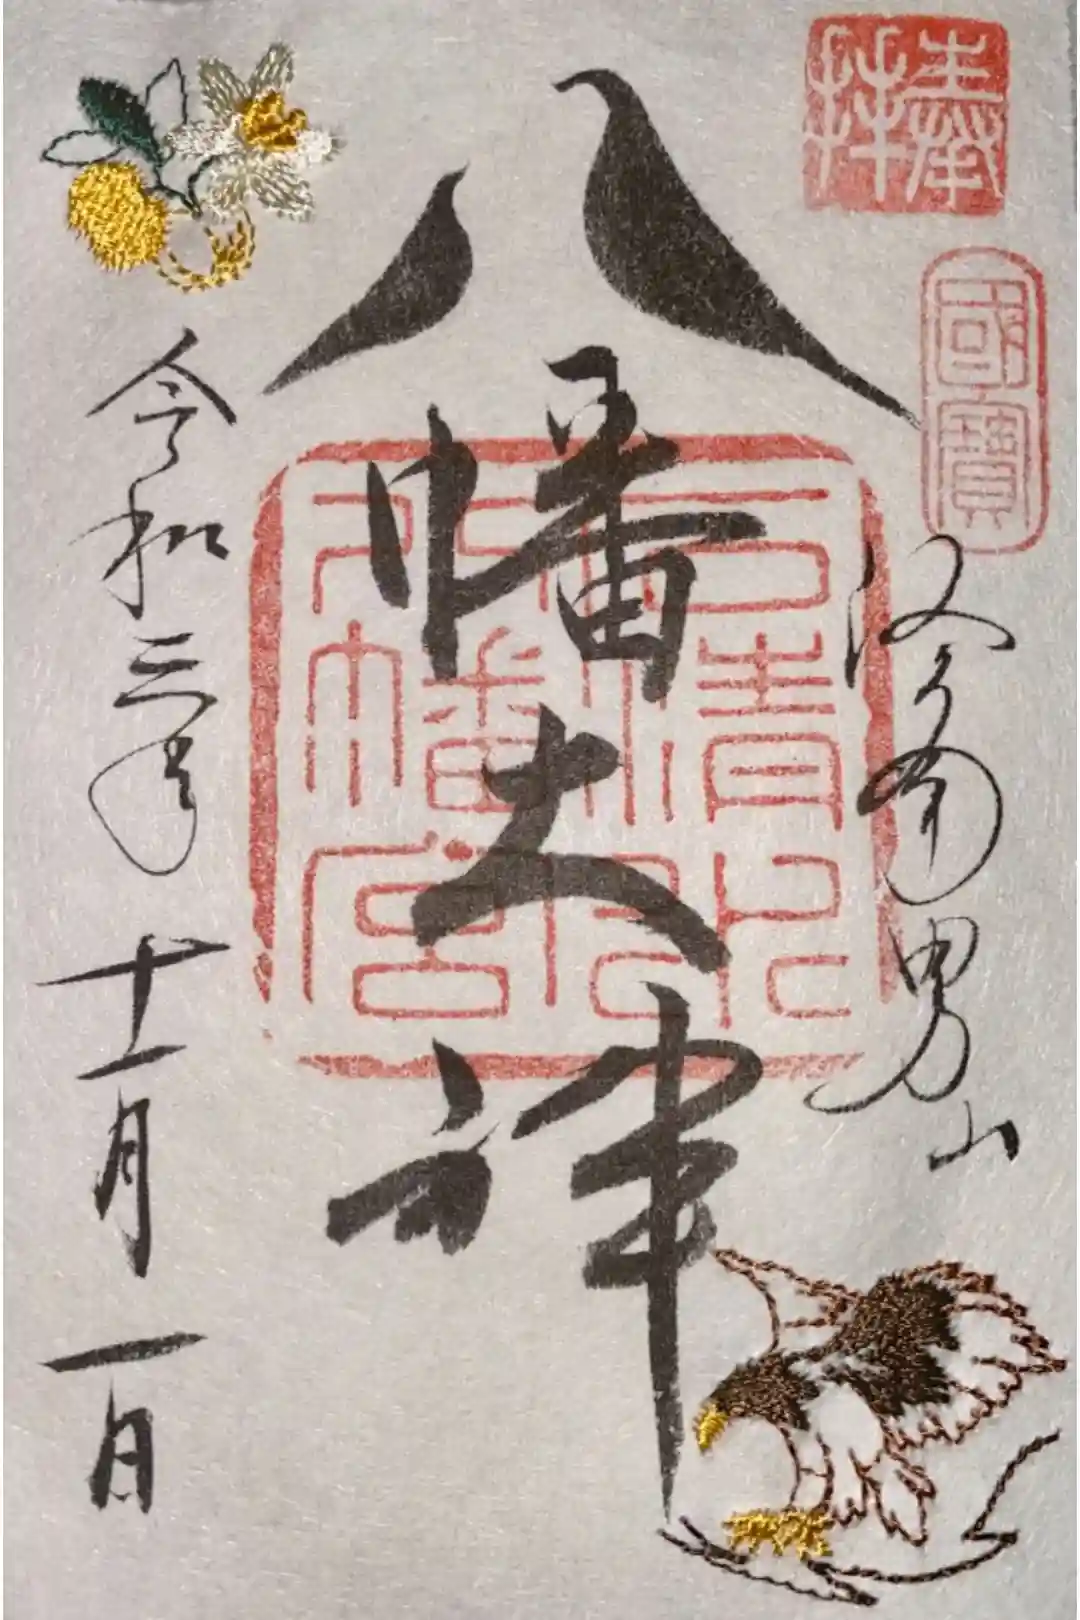 奉拝
國寶
洛南男山
八幡大神
石清水
八幡宮
令和三年十一月一日